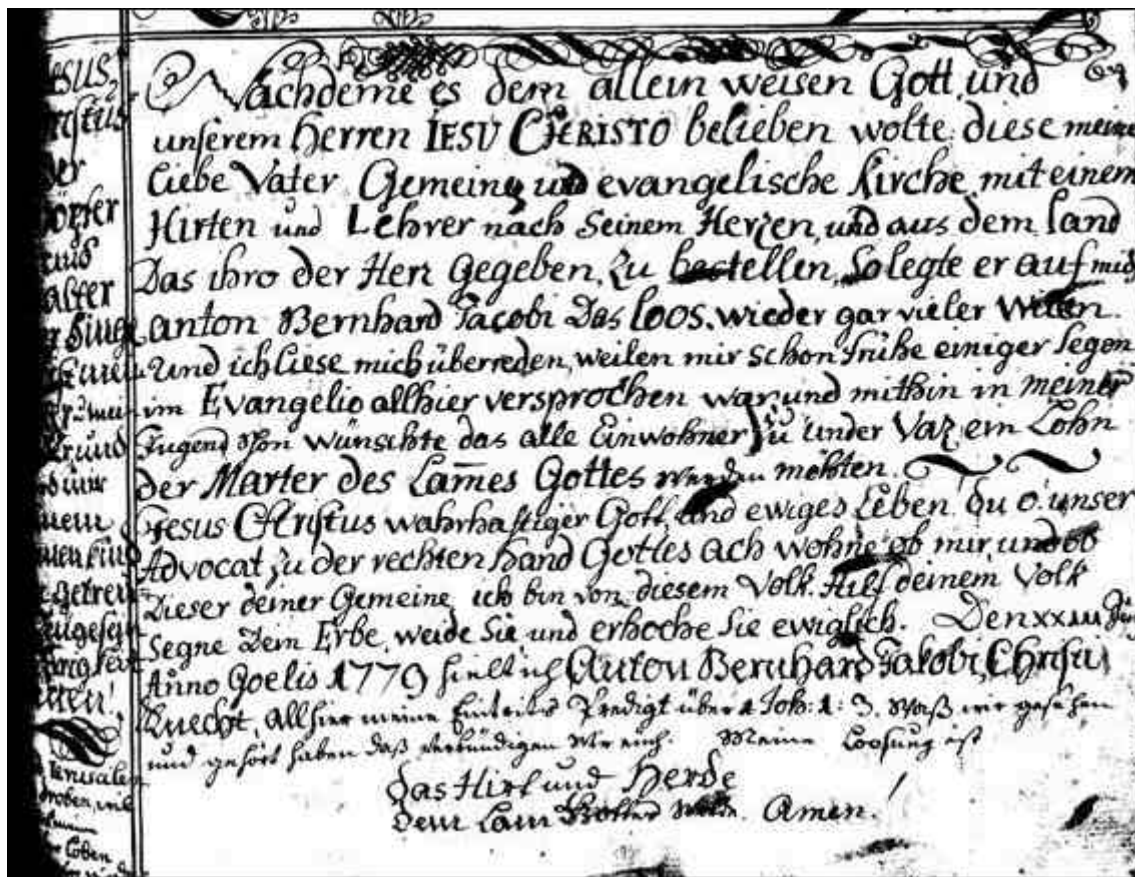 Nachdeme es dem allein weisen Gott und
unserem Herren IESU CHRISTO belieben wolte diese meine
liebe Vater Gemeine und evangelische Kirche mit einem
Hirten und Lehrer nach Seinem Herzen, und aus dem land
Das ihro der Herr gegeben, zu bestellen, So legte er auf mich
anton Bernhard Jacobi Das loos. wieder gar vieler Willen.
Und ich liese mich überreden, weilen mir schon frühe einiger Segen
im Evangelio allhier versprochen war, und mithin in meiner
Jugend schon wünschte das alle Einwohner zu under Vaz ein Lohn
der Marter des Lam̄es Gottes werden möchten.
Jesus CHristus wahrhaftiger Gott, und ewiges Leben! du o! unser
Advocat zu der rechten hand Gottes ach wohne ob mir, und ob
Dieser deiner Gemeine, ich bin von diesem Volk. Hilf deinem Volk
Segne Dein Erbe, weide Sie und erhoche Sie ewiglich. Den xxiii
Anno Goelis 1779 hielt ich Anton Bernhard Jakobi, Christi
Knecht, allhier meine Eintritts Predigt über 1 Joh: 1: 3. Waß wir gesehen
und gehört haben daß verkündigen wir euch. Meine Loosung ist
das Hirt und Herde
dem Lam Gottes werde. Amen!
esus,
ristus
der
alter
und
Jerusalem
Loben